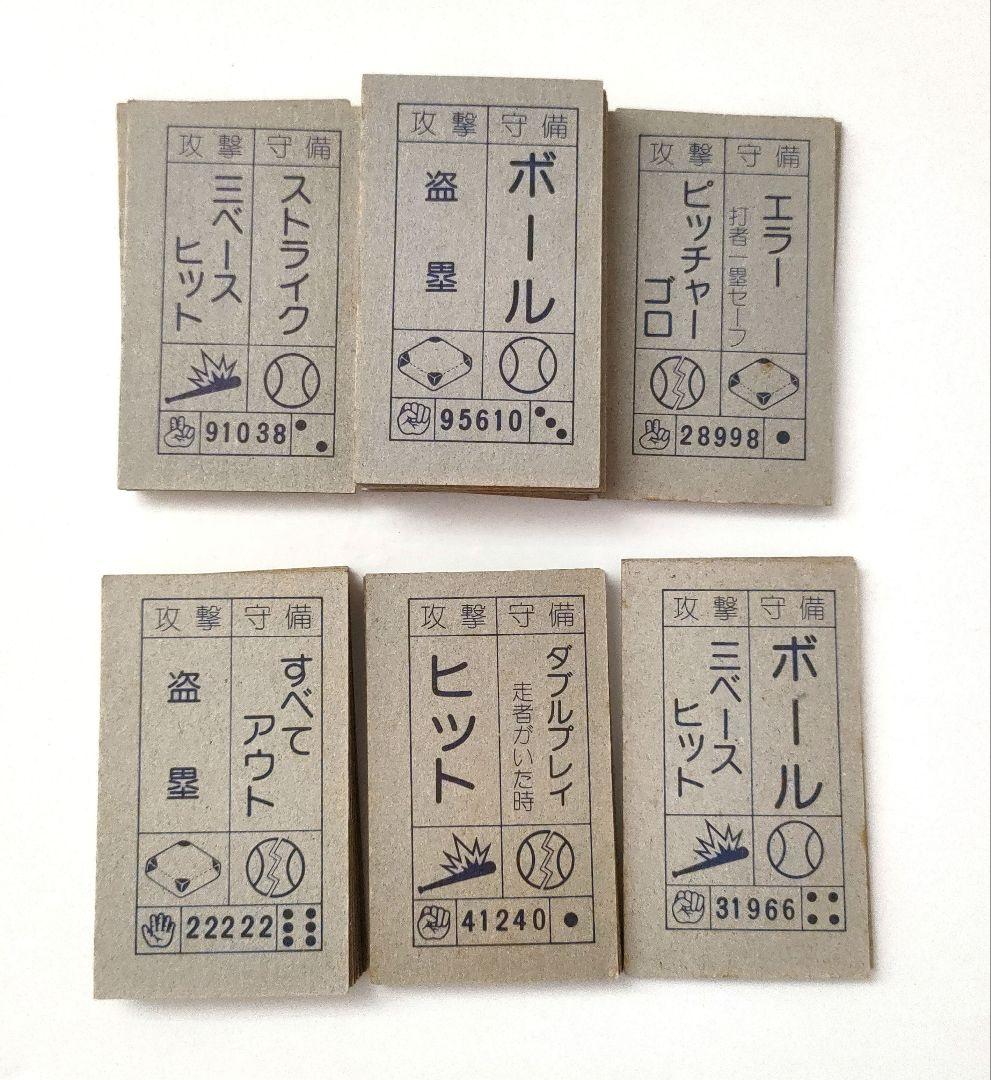 攻撃 守備
ストライク
三ベース
ヒット
91038
攻撃 守備
ボール
盗塁
95610
攻撃 守備
エラー
打者一塁セーフ
ピッチャー
ゴロ
28998
攻撃 守備
すべて
アウト
盗塁
22222
攻撃 守備
ダブルプレイ
走者がいた時
ヒット
41240
攻撃 守備
ボール
三ベース
ヒット
31966